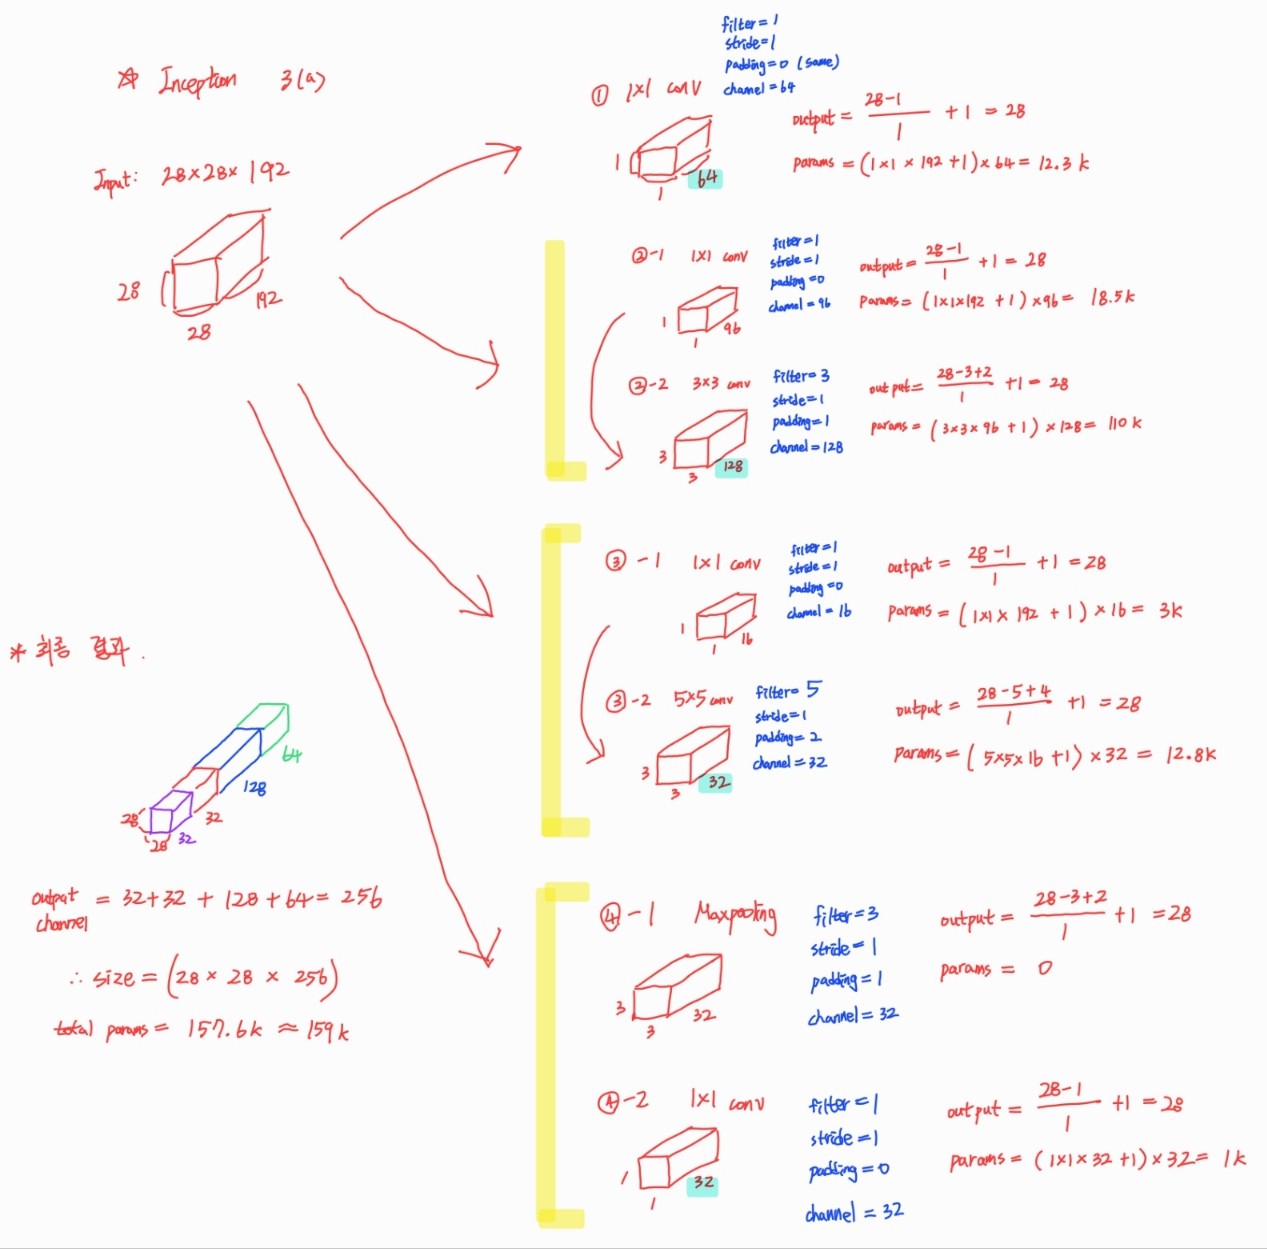 ☆ Inception 3(a)
Input: 28×28×192
28
28
192
filter=1
stride=1
padding=0 (same)
channel=64
① 1×1 conv
1
1
64
output = 28-1 / 1 + 1 = 28
params = (1×1×192+1)×64 = 12.3k
②-1 1×1 conv
filter=1
stride=1
padding=0
channel=96
1
1
96
output = 28-1 / 1 +1 = 28
params = (1×1×192 +1)×96 = 18.5k
②-2 3×3 conv
filter=3
stride=1
padding=1
channel=128
3
3
128
output = 28-3+2 / 1 +1 = 28
params = (3×3×96 +1)×128 = 110k
③-1 1×1 conv
filter=1
stride=1
padding=0
channel=16
1
1
16
output = 28-1 / 1 +1 = 28
params = (1×1×192 +1)×16 = 3k
③-2 5×5 conv
filter=5
stride=1
padding=2
channel=32
3
3
32
output = 28-5+4 / 1 +1 = 28
params = (5×5×16 +1)×32 = 12.8k
④-1 Maxpooling
filter=3
stride=1
padding=1
channel=32
3
3
32
output = 28-3+2 / 1 +1 = 28
params = 0
④-2 1×1 conv
filter=1
stride=1
padding=0
channel=32
1
1
32
output = 28-1 / 1 +1 = 28
params = (1×1×32 +1)×32 = 1k
* 최종 결과.
64
128
32
32
28
28
output channel = 32+32 + 128+64 = 256
∴ size = (28 × 28 × 256)
total params = 157.6k ≈ 159k